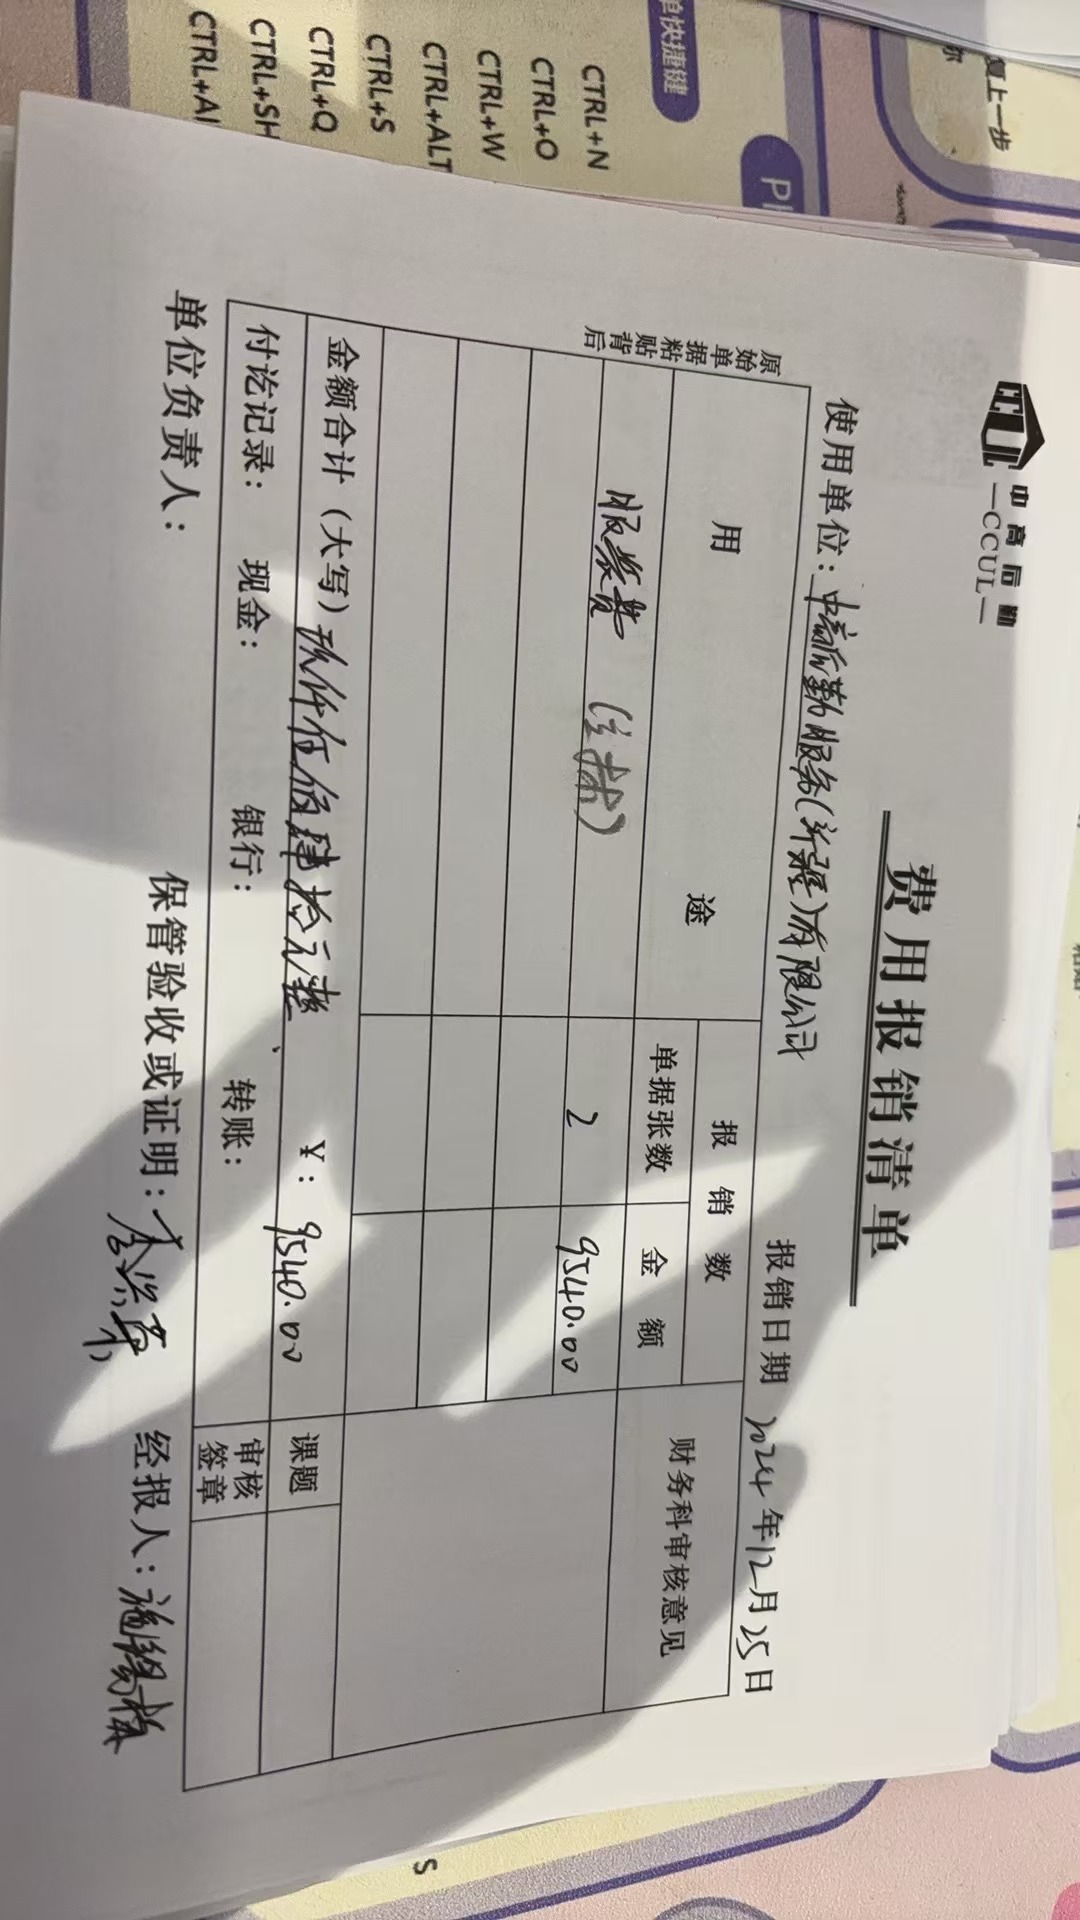 中高后勤
—CCUL—
费用报销清单
使用单位：中高后勤服务(新疆)有限公司 报销日期 2024年12月25日
原始单据粘贴背后
用途 报销数 财务科审核意见
单据张数 金额
服装费 2 9540.00
金额合计（大写）玖仟伍佰肆拾元整 ￥：9540.00 课题
付讫记录： 现金： 银行： 转账： 审核签章
单位负责人： 保管验收或证明： 经报人：
复上一步
单快捷键
CTRL+N
CTRL+O
CTRL+W
CTRL+ALT
CTRL+S
CTRL+Q
CTRL+SH
CTRL+Al
S